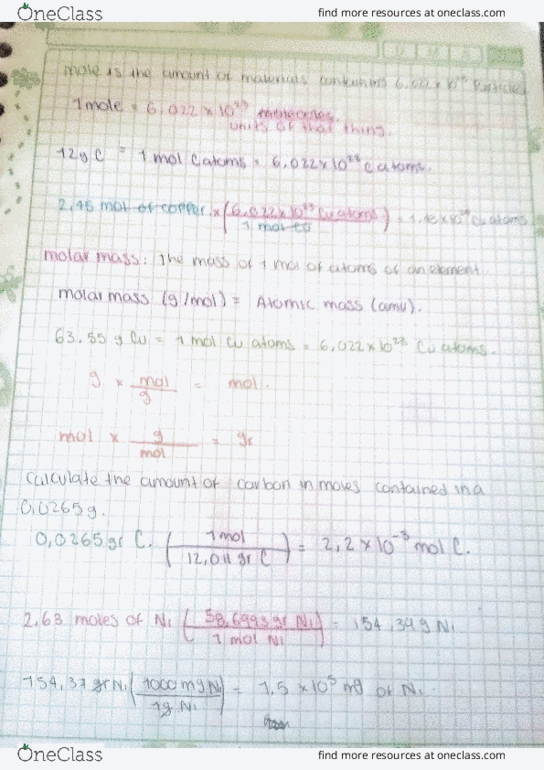 OneClass
find more resources at oneclass.com
mole is the amount of materials containing 6.022 x 10²³ Particles
1 mole = 6.022 x 10²³
units of that thing.
12g C = 1 mol C atoms = 6.022 x 10²³ C atoms.
2.45 mol of copper x (6.022 x 10²³ Cu atoms / 1 mol Cu) = 1.48 x 10²⁴ Cu atoms
molar mass: The mass of 1 mol of atoms of an element
molar mass (g/mol) = Atomic mass (amu).
63.55 g Cu = 1 mol Cu atoms = 6.022 x 10²³ Cu atoms.
g x mol / g = mol.
mol x g / mol = gr
Calculate the amount of carbon in moles contained in a
0,0265 g.
0,0265 gr C. (1 mol / 12,011 gr C) = 2,2 x 10⁻³ mol C.
2,63 moles of Ni (58,6993 gr Ni / 1 mol Ni) = 154,34 g Ni
154,37 gr Ni (1000 mg Ni / 1g Ni) = 1,5 x 10⁵ mg of Ni.
OneClass
find more resources at oneclass.com